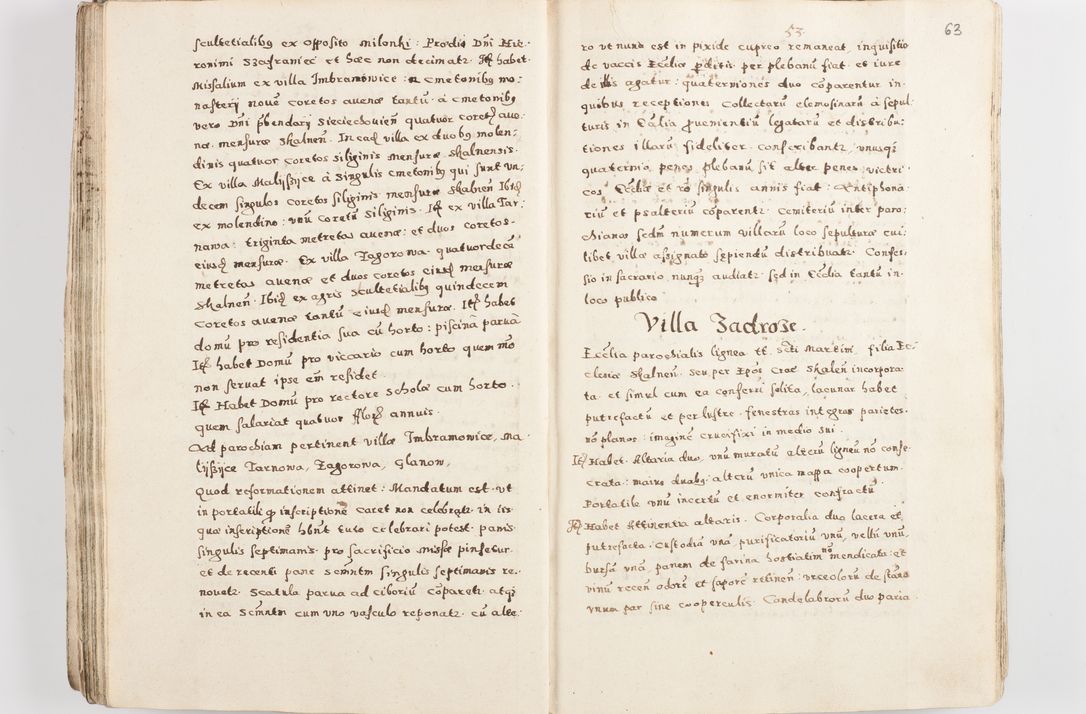 scultetialibꝰ ex opposito milonki: Prædiũ Dñi Hie-
ronimi Szafraniec et hæc non decimatꝛ. Itẽ habet
Missalium ex villa Imbramowice: a cmetonibꝰ mo:
nasterij nouẽ coretos auenæ tantũ: à cmetonibꝰ
vero Dñi præbendarij Siecieschouieñ quatuor coretos aue:
næ mensuræ Skalneñ. In eadẽ villa ex duobꝰ molen:
dinis quatuor coretos siliginis mensuræ Skalnensis.
Ex villa Malijszijce à singulis cmetonibꝰ qui sunt vn:
decem singulos coretos siliginis mensuræ Skalneñ Ibidẽ
ex molendino: vnũ coretũ siliginis. Itẽ ex villa Tar:
nawa: triginta metretas auenæ: et duos coretos
eiusdẽ mensuræ. Ex villa Zagorowa quatuordecẽ
metretas auenæ et duos coretos eiusdẽ mensuræ
Skalneñ. Ibidẽ ex agris scultetialibꝰ quindecem
coretos auenæ tantũ eiusdẽ mensuræ. Itẽ habet
domũ pro residentia sua cũ horto: piscinã paruã
Itẽ habet Domũ pro viccario cum horto quem mõ
non seruat ipse em̃ residet.
Itẽ Habet Domũ pro rectore scholæ cum horto.
quem salariat quatuor floꝛ annuis.
Ad parochiam pertinent villæ Imbramowice, Ma:
lijszijce Tarnowa, Zagorowa, Glanow,
Quod reformationem attinet: Mandatum est. vt
in portatili qᵈ inscriptionẽ caret non celebretꝛ in iis
quæ inscriptionẽ hbñt tuto celebrari potest. panis
singulis septimanis pro sacrificio Missæ pinsetur
et de recenti pane Scm̃ntm singulis septimanis re:
nouetꝛ. Scatula parua ad ciborium cõparetꝛ atqꝫ
in ea Scm̃ntm cum vno vasculo reponatꝛ. cũ alte:
53
63
ro vt nunc est in pixide cupreo remaneat, inquisitio
de vaccis Ecclĩæ perditis per plebanũ fiat et iure
de illis agatur: quaterniones duo cõparentur in
quibus receptiones collectarũ elemosinarũ à sepul-
turis in Ecclĩa prouenientiũ legatarũ et distribu:
tiones illarũ fideliter conscribantꝛ, vnusqꝫ
quaternio penes plebanũ sit alter penes victri:
cos Ecclĩæ et rõ singulis annis fiat: Antiphona:
riũ et psalteriũ cõparentꝛ. Cemiteriũ inter paro:
chianos scdm̃ numerum villarũ loco sepulturæ cui:
libet villæ assignato sepiendũ distribuatꝛ. Confes:
sio in sacrario nunqꝫ audiatꝛ sed in Ecclĩa tantũ in
loco publico
Villa Zadroze.
Ecclĩa parochialis lignea tt. Scti Martini, filia Ec-
clesiæ Skalneñ. seu per Epõs Crac̃ Skaleñ incorpora-
ta. et simul cum ea conferri solita, lacunar habet
putrefactũ et perlustre, fenestras integras parietes
nõ planos: imaginẽ crucifixi in medio sui.
Itẽ Habet. Altaria duo, vnũ muratũ alterũ ligneũ nõ conse-
crata: maius duabꝰ: alterũ vnica mappa coopertum.
Portatile vnũ incertũ et enormiter confractũ
Itẽ Habet Attinentia altaris. Corporalia duo lacera et
putrefacta. Custodiã vnã purificatoriũ vnũ, vellũ vnũ,
bursã vnã, panem de farina hostiatim nõ mendicata: et
vinũ recen̄ odorẽ et saporẽ retinen̄: vrceolorũ de stãno
vnum par sine cooperculis. Candelabrorũ duo paria